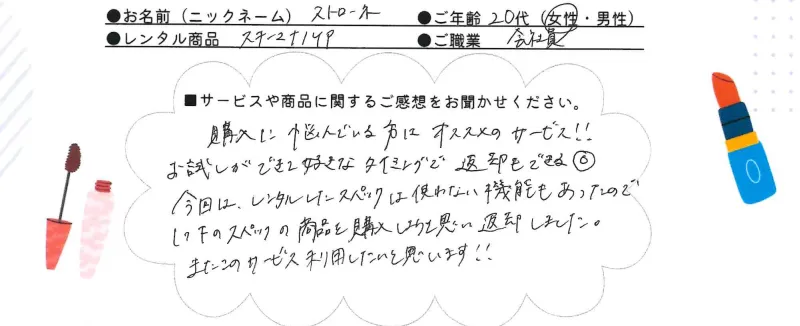 ●お名前（ニックネーム） ストローネ ●ご年齢 20代（女性・男性）
●レンタル商品 スチーマナノケア ●ご職業 会社員
■サービスや商品に関するご感想をお聞かせください。
購入に悩んでいる方にオススメのサービス!!
お試しができて好きなタイミングで返却もできる◎
今回は、レンタルしたスペックは使わない機能もあったので
1つ下のスペックの商品を購入しようと思い返却しました。
またこのサービス利用したいと思います!!